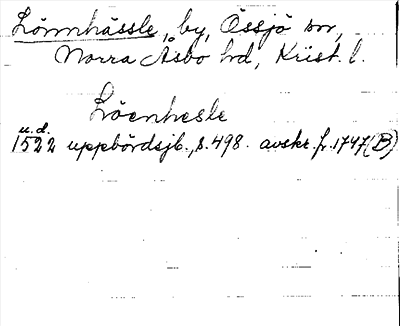 Lönnhässle, by, Össjö sn,
Norra Åsbo hd, Krist. l.
Löenhesle
u.d.
1522 uppbördsjb., s. 498. avskr. fr. 1747 (B)